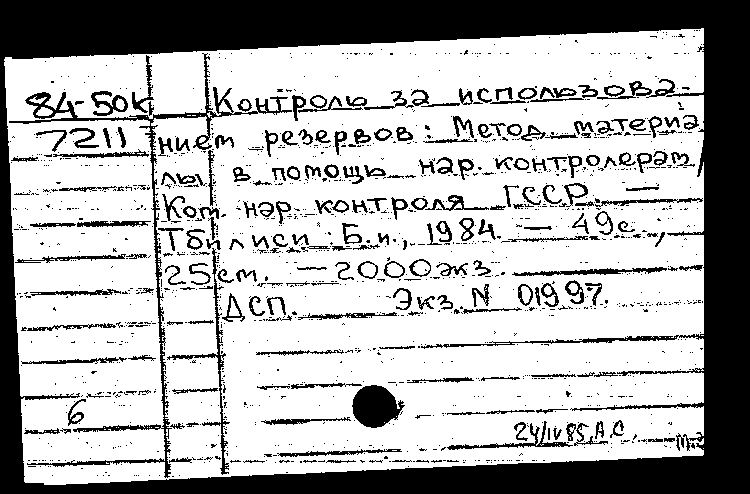 84-50к Контроль за использова-
7211 нием резервов: Метод. материа
лы в помощь нар. контролерам /
Ком. нар. контроля ГССР. —
Тбилиси: Б.и., 1984. — 49с.;
25см. — 2000экз.
ДСП. Экз. N 01997.
6
24/IV85, А.С.